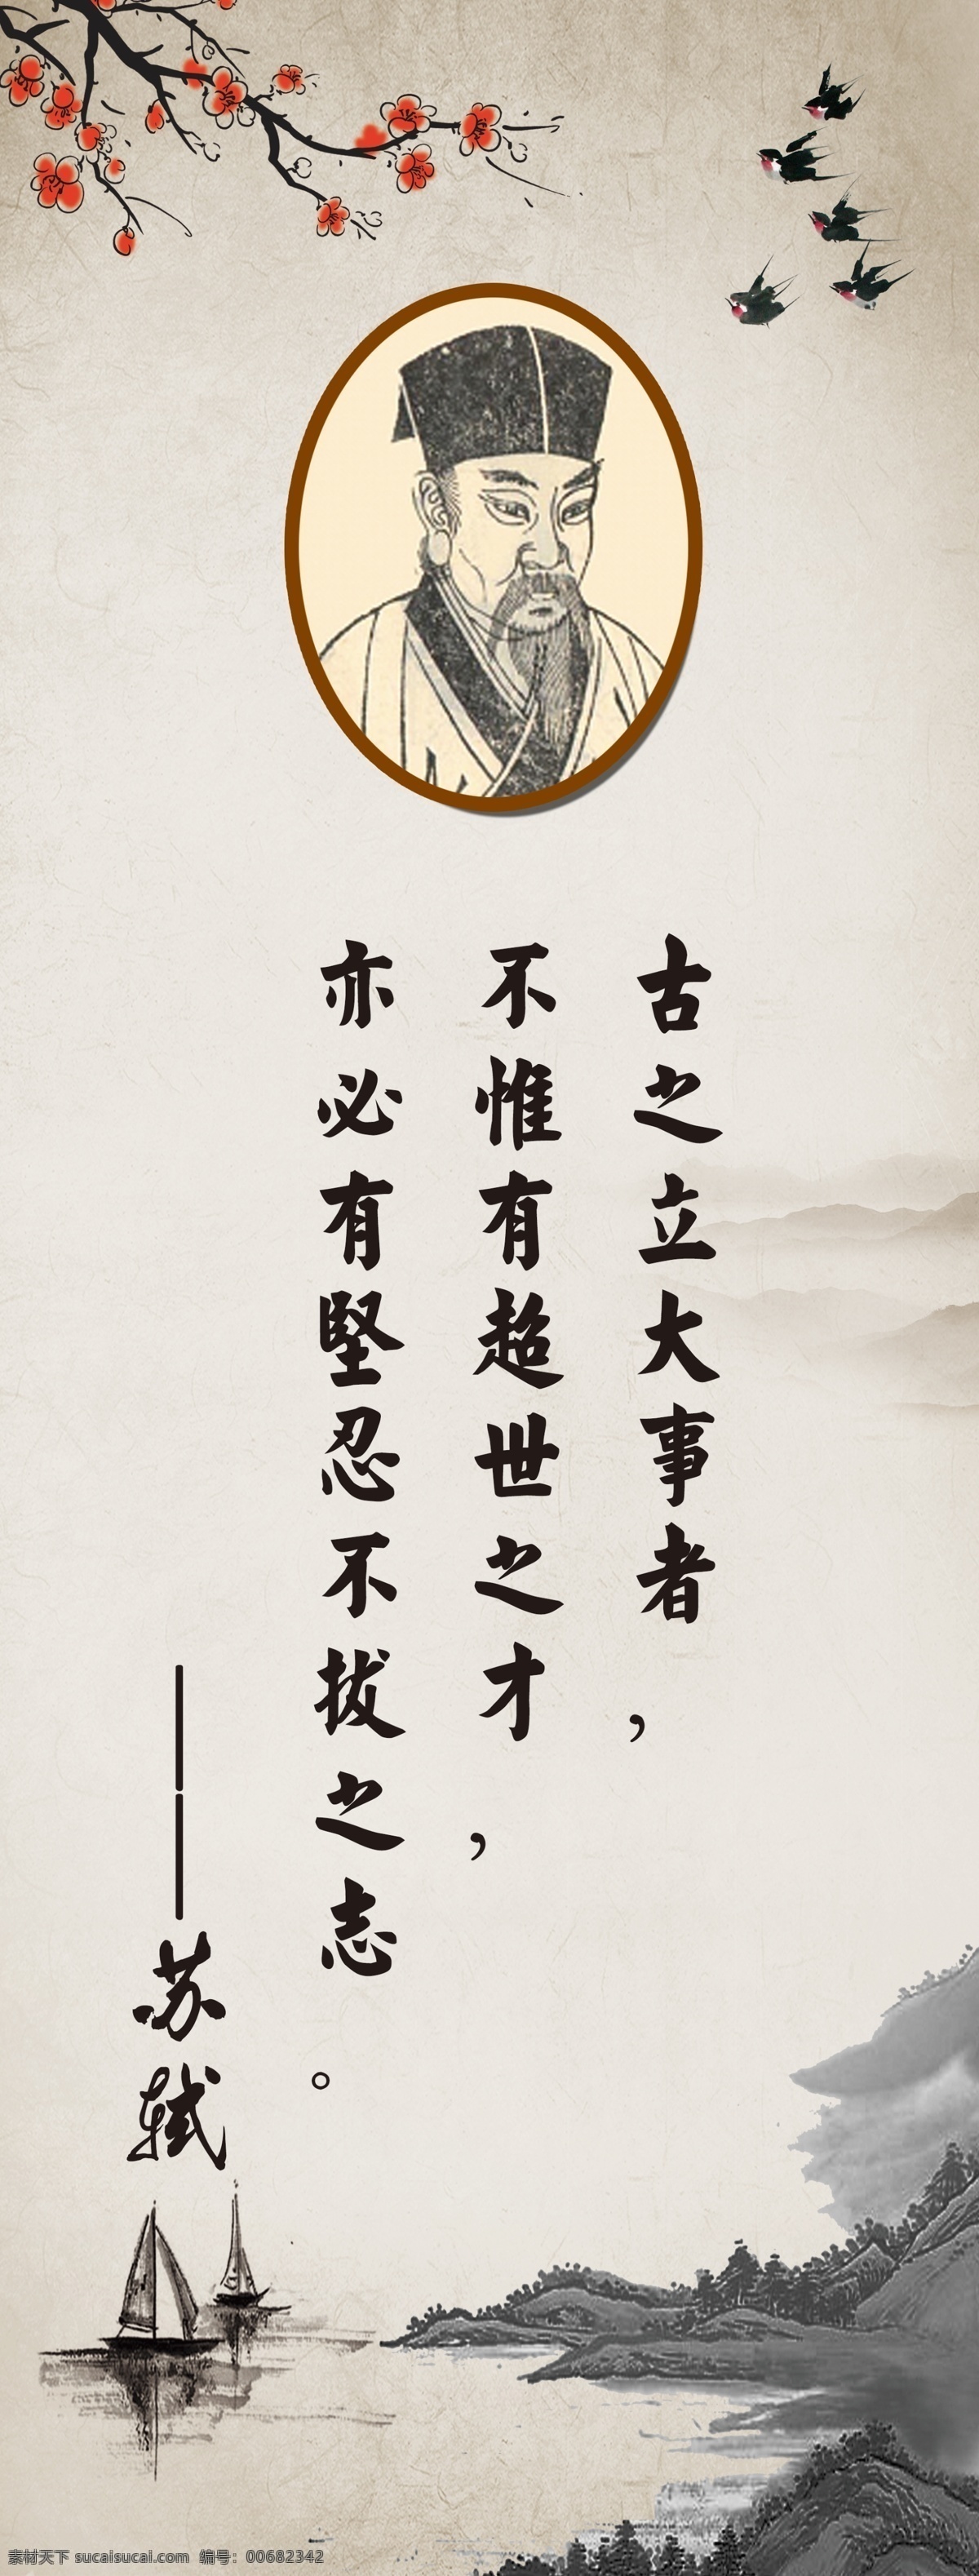 古之立大事者，
不惟有超世之才，
亦必有堅忍不拔之志。
——苏轼
素材天下 sucaisucai.com 编号：00682342